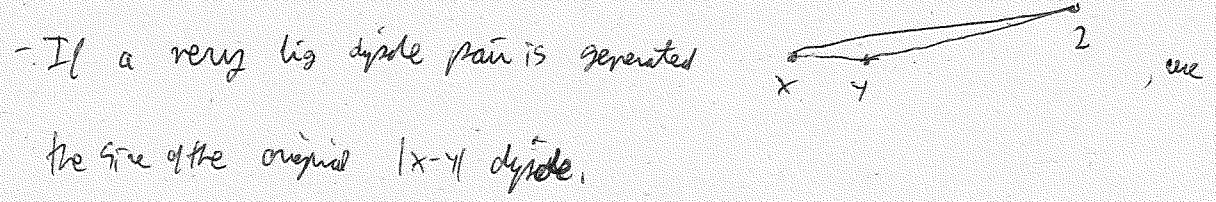 - If a very big dipole pair is generated x y z , use
the size of the original |x-y| dipole.